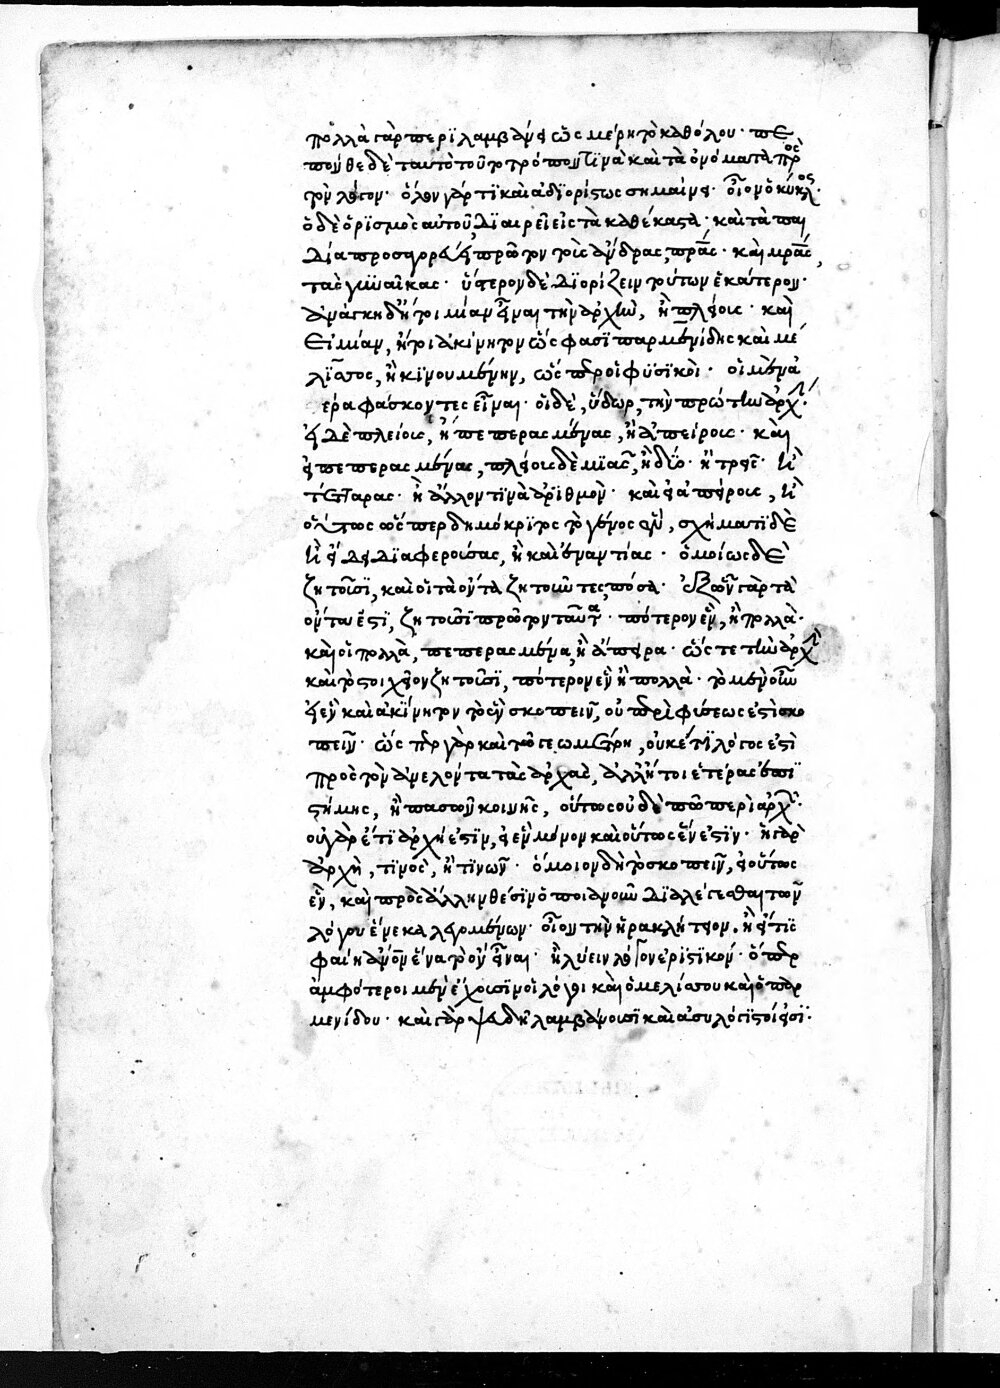 πολλὰ γὰρ περϊλαμβάνει ὡς μέρη τὸ καθόλου· πέ
πονθε δὲ ταυτὸ τοῦτο τρόπον τϊνὰ καὶ τὰ ὀνόματα πρὸς
τὸν λόγον· ὅλον γάρ τϊ καὶ ἀδϊορίστως σημαίνει· οἷον ὁ κύκλος·
ὁ δὲ ὁρϊσμὸς αὐτοῦ, δϊαιρεῖ εἰς τὰ καθέκαστα· καὶ τὰ παι
δία προσαγορεύει πρῶτον τοὺς ἄνδρας, πρας· καὶ μρας,
τὰς γυναῖκας· ὕστερον δὲ δϊορίζειν τούτων ἑκάτερον·
ἀνάγκη δὴ ἤτοι μίαν εἶναι τὴν ἀρχὴν, ἢ πλείους· καὶ
εἰ μίαν, ἤτοι ἀκίνητον ὥς φασϊ παρμενίδης καὶ μέ
λϊσσος, ἢ κϊνουμένην, ὥσπερ οἱ φϋσϊκοὶ· οἱ μὲν ἀ
έρα φάσκοντες εἶναι· οἱ δὲ, ὕδωρ, τὴν πρώτην ἀρχ·
εἰ δὲ πλείους, ἢ πεπερασμένας, ἢ ἀπείρους· καὶ
εἰ πεπερασμένας, πλείους δὲ μϊᾶς, ἢ δύο· ἢ τρεῖς· ἢ
τέσσαρας· ἢ ἄλλον τϊνὰ ἀρϊθμὸν· καὶ εἰ ἀπείρους, ἢ
οὕτως ὥσπερ δημόκρϊτος τὸ γένος ἓν, σχήματϊ δὲ
ἢ εἴδει δϊαφερούσας, ἢ καὶ ἐναντίας· ὁμοίως δὲ
ζητοῦσϊ, καὶ οἱ τὰ ὄντα ζητοῦντες, πόσα· ἐξ ὧν γὰρ τὰ
ὄντα ἐστὶ, ζητοῦσϊ πρῶτον ταῦτα· πότερον ἓν, ἢ πολλὰ·
καὶ εἰ πολλὰ, πεπερασμένα, ἢ ἄπειρα· ὥστε τὴν ἀρχὴ
καὶ τὸ στοιχεῖον ζητοῦσϊ, πότερον ἓν ἢ πολλὰ· τὸ μὲν οὖν
εἰ ἓν καὶ ἀκίνητον τὸ ὂν σκοπεῖν, οὐ περὶ φύσεως ἐστὶ σκο
πεῖν· ὥσπερ γὰρ καὶ τῷ γεωμέτρη, οὐκέτϊ λόγος ἐστὶ
πρὸς τὸν ἀνελόντα τὰς ἀρχὰς, ἀλλ' ἤτοι ἑτέρας ἐπϊ
στήμης, ἢ πασῶν κοινῆς, οὕτως οὐδὲ τῷ περὶ ἀρχ·
οὐ γὰρ ἔτϊ ἀρχή ἐστϊν, εἰ ἓν μόνον καὶ οὕτως ἕν ἐστϊν· ἡ γὰρ
ἀρχὴ, τϊνὸς, ἢ τϊνῶν· ὅμοιον δὴ τὸ σκοπεῖν, εἰ οὕτως
ἓν, καὶ πρὸς ἄλλην θέσϊν ὁποιανοῦν δϊαλέγεσθαι τῶν
λόγου ἕνεκα λεγομένων· οἷον τὴν ἡρακλήτειον· ἢ εἴ τϊς
φαίη ἄνον ἕνα τὸ ὂν εἶναι· ἢ λύειν λόγον ἐρϊστϊκὸν· ὅπερ
ἀμφότεροι μὲν ἔχουσϊν οἱ λόγοι καὶ ὁ μελίσσου καὶ ὁ παρ
μενίδου· καὶ γὰρ ψευδῆ λαμβάνουσϊ καὶ ἀσυλλόγϊστοί εἰσϊ: